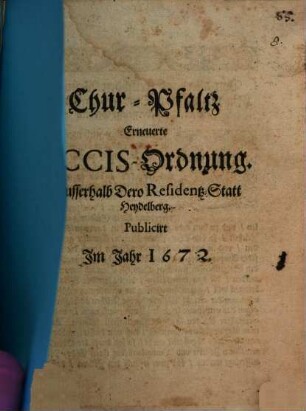 85.
9.
Chur-Pfaltz
Erneuerte
CCIS-Ordnung.
usserhalb Dero Residentz-Statt
Heydelberg.
Publicirt
Im Jahr 1672.